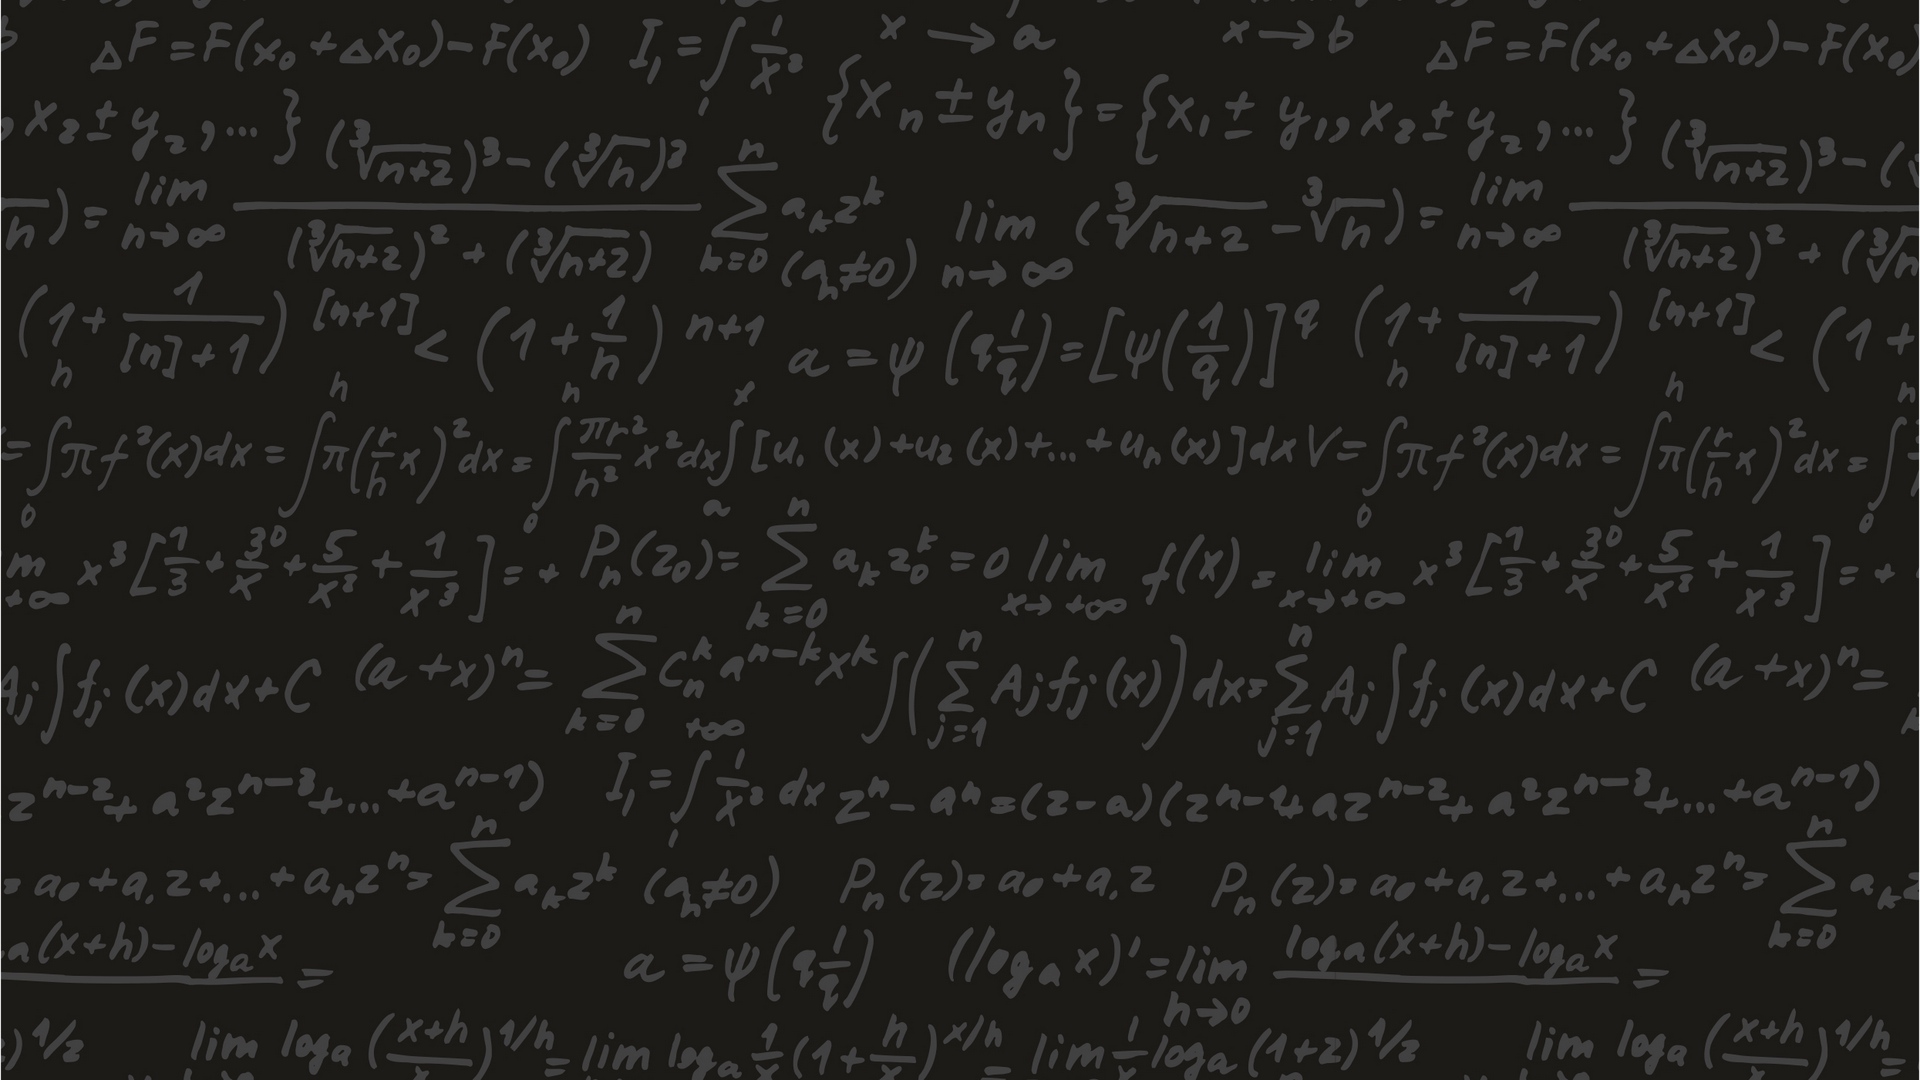 ΔF = F(x₀ + Δx₀) − F(x₀) I₁ = ∫₁ 1/x³ x → a x → b ΔF = F(x₀ + Δx₀) − F(x₀)
, x₂ ± y₂, ... } {xₙ ± yₙ} = {x₁ ± y₁, x₂ ± y₂, ... }
n) = lim n→∞ ((∛(n+2))³ − (∛n)³)/((∛(n+2))² + (∛(n+2)) ∑ₖ₌₀ⁿ aₖzᵏ (aₙ≠0) lim n→∞ (∛(n+2) − ∛n) = lim n→∞ ((∛(n+2))³ − (∛ / (∛(n+2))² + (∛n
(1 + 1/([n]+1))^[n+1] < (1 + 1/n)^n+1 a = ψ(q 1/q) = [ψ(1/q)]^q (1 + 1/([n]+1))^[n+1] < (1 +
= ∫₀ʰ πf²(x)dx = ∫ʰ π(r/h x)²dx = ∫₀ʰ πr²/h² x²dx ∫ₐˣ [u₁(x) + u₂(x) + ... + uₙ(x)]dx V = ∫₀ʰ πf²(x)dx = ∫ʰ π(r/h x)²dx = ∫₀ʰ
m +∞ x³[1/3 + 3⁰/x + 5/x² + 1/x³] = + Pₙ(z₀) = ∑ₖ₌₀ⁿ aₖz₀ᵏ = 0 lim x→+∞ f(x) = lim x→+∞ x³[1/3 + 3⁰/x + 5/x² + 1/x³] = +
Aⱼ∫fⱼ(x)dx + C (a + x)ⁿ = ∑ₖ₌₀ⁿ Cₙᵏ aⁿ⁻ᵏxᵏ ∫(∑ⱼ₌₁ⁿ Aⱼfⱼ(x))dx = ∑ⱼ₌₁ⁿ Aⱼ∫fⱼ(x)dx + C (a + x)ⁿ =
zⁿ⁻² + a²zⁿ⁻³ + ... + aⁿ⁻¹) I₁ = ∫₁^+∞ 1/x³ dx zⁿ − aⁿ = (z − a)(zⁿ⁻¹ + azⁿ⁻² + a²zⁿ⁻³ + ... + aⁿ⁻¹)
= a₀ + a₁z + ... + aₙzⁿ = ∑ₖ₌₀ⁿ aₖzᵏ (aₙ≠0) Pₙ(z) = a₀ + a₁z Pₙ(z) = a₀ + a₁z + ... + aₙzⁿ = ∑ₖ₌₀ⁿ aₖz
a(x+h) − logₐx = a = ψ(q 1/q) (logₐx)' = lim h→0 logₐ(x+h) − logₐx =
)^1/z lim logₐ((x+h)/x)^1/h = lim logₐ 1/x (1 + h/x)^x/h = lim 1/x logₐ(1+z)^1/z lim logₐ((x+h)/x)^1/h =